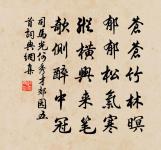 蒼蒼竹林暝
郁郁松氣寒
縱橫興来筆
欹側醉中冠
司馬光何秀才郡园五
首詞典網集